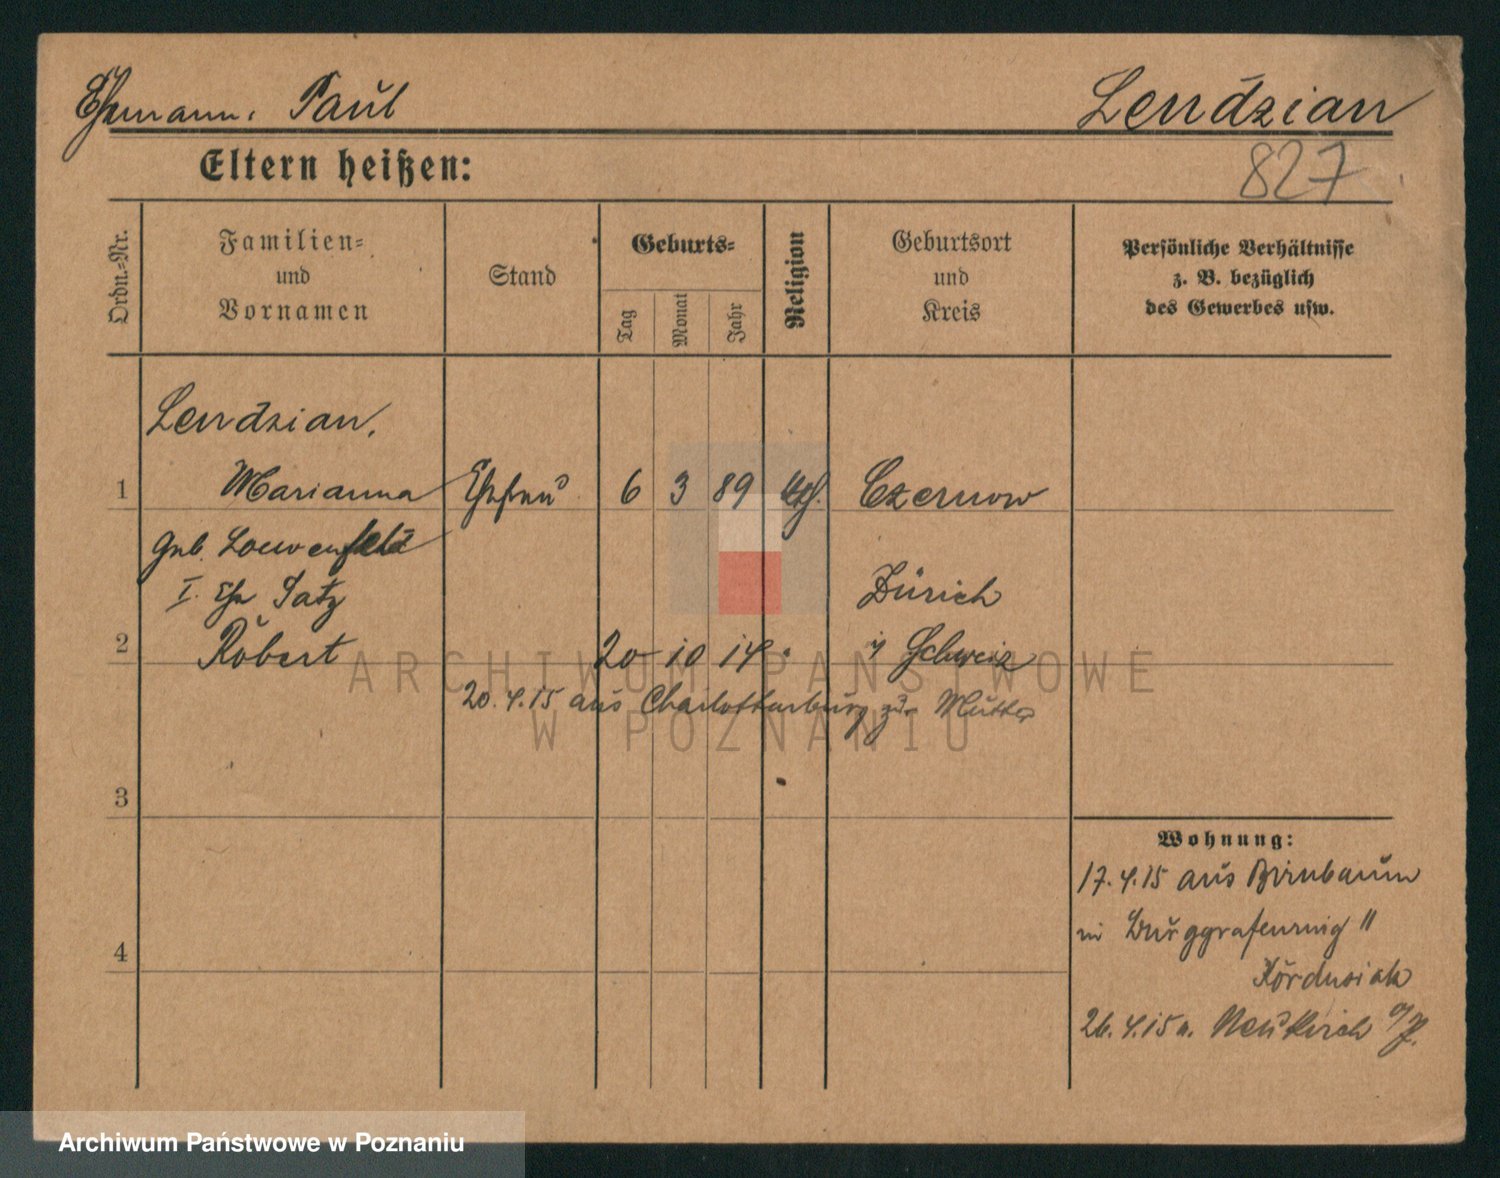 Ehemann. Paul Lendzian
827
Eltern heißen:
Ordn.=Nr.
Familien=
und
Vornamen
Stand
Geburts=
Tag
Monat
Jahr
Religion
Geburtsort
und
Kreis
Persönliche Verhältnisse
z. B. bezüglich
des Gewerbes usw.
Lendzian,
1 Marianna Ehefrau 6 3 89 Czernow
geb. Loewenfeld
I. Ehe Zürich
2 Robert 20 10 14 Schweiz
20.4.15 aus Charlottenburg zur Mutter
3
4
Wohnung:
17.4.15 aus Birnbaum
in Burggrafenring 11
26.4.15 n. Neukirch
ARCHIWUM PAŃSTWOWE
W POZNANIU
Archiwum Państwowe w Poznaniu